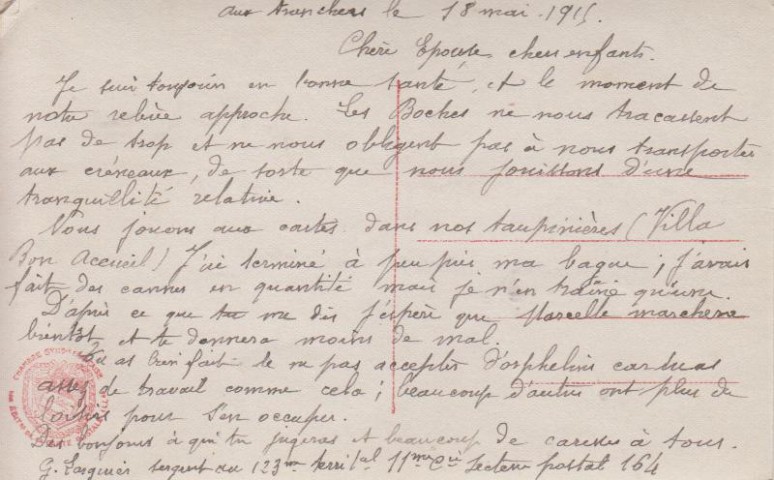 aux tranchées le 18 mai 1915.
Chère Epouse, chers enfants.
Je suis toujours en bonne santé, et le moment de
notre relève approche. Les Boches ne nous tracassent
pas de trop et ne nous obligent pas à nous transporter
aux créneaux, de sorte que nous jouissons d'une
tranquillité relative.
Nous jouons aux cartes dans nos taupinières (Villa
Bon Accueil) J'ai terminé à peu près ma bague ; j'avais
fait des cannes en quantité mais je n'en traîne qu'une.
D'après ce que tu me dis j'espère que Marcelle marchera
bientôt et te donnera moins de mal.
Tu as bien fait de ne pas accepter d'orphelins car tu as
assez de travail comme cela ; beaucoup d'autres ont plus de
loisirs pour s'en occuper.
Des bonjours à qui tu jugeras et beaucoup de caresses à tous.
G. sergent au 123me territal 11me Cie Secteur postal 164